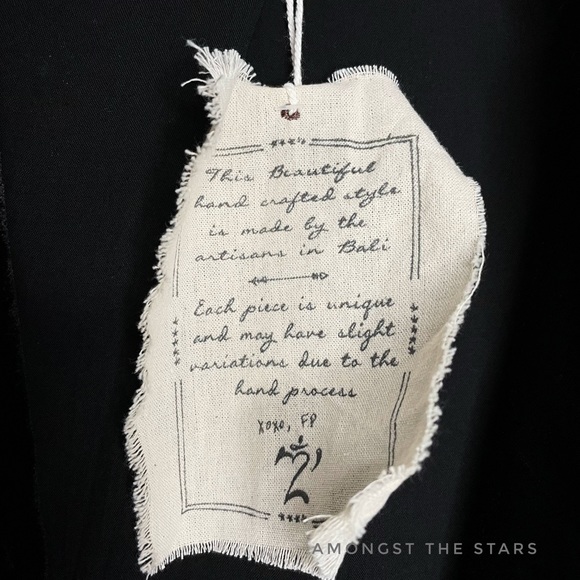 This Beautiful
hand crafted style
is made by the
artisans in Bali
Each piece is unique
and may have slight
variations due to the
hand process
xoxo, FP
AMONGST THE STARS